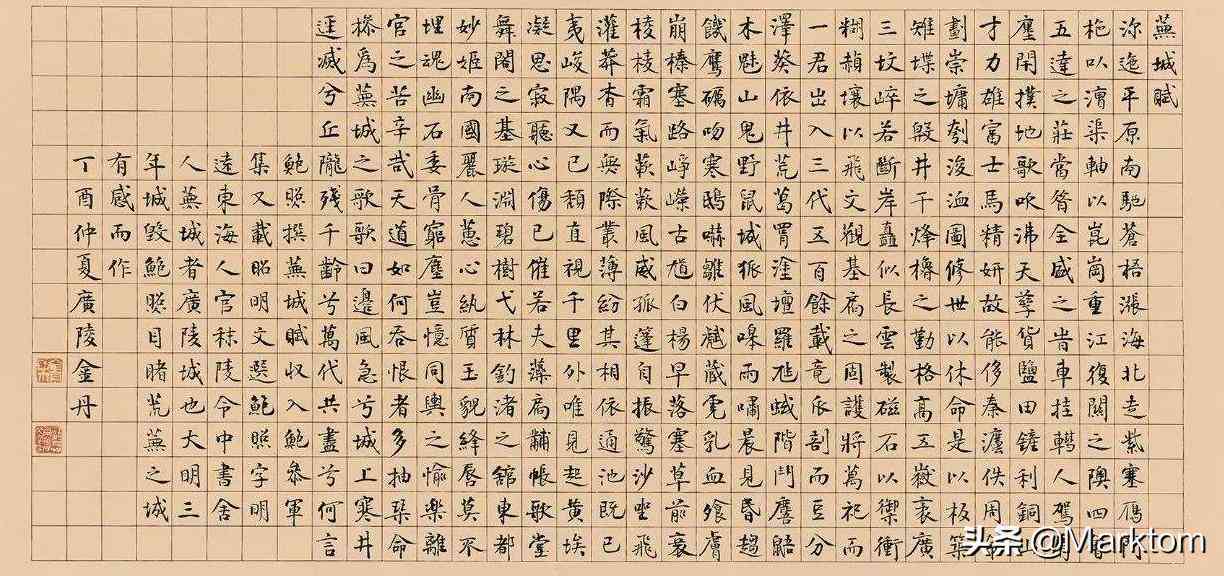 蕪城賦
沵迤平原南馳蒼梧漲海北走紫塞雁門
柂以漕渠軸以崑崗重江復關之隩四會
五達之莊當昝全盛之旹車挂轊人駕肩
廛閈撲地歌吹沸天孳貨鹽田鏟利銅山
才力雄富士馬精妍故能侈秦灋佚周令
劃崇墉刳浚洫圖修世以休命是以板築
雉堞之殷井干烽櫓之勤格高五嶽袤廣
三墳崪若斷岸矗似長雲製磁石以禦衝
糊赬壤以飛文觀基扃之固護將萬祀而
一君出入三代五百餘載竟瓜剖而豆分
澤葵依井荒葛罥塗壇羅虺蜮階鬥麏鼯
木魅山鬼野鼠城狐風嗥雨嘯晨見昏趨
饑鷹礪吻寒鴟嚇雛伏虣藏虎乳血飧膚
崩榛塞路崢嶸古馗白楊早落塞草前衰
棱棱霜氣蔌蔌風威孤蓬自振驚沙坐飛
灌莽杳而無際叢薄紛其相依通池既已
夷峻隅又已頹直視千里外唯見起黃埃
凝思寂聽心傷已催若夫藻扃黼帳歌堂
舞閣之基璇淵碧樹弋林釣渚之館東都
妙姬南國麗人蕙心紈質玉貌絳唇莫不
埋魂幽石委骨窮塵豈憶同輿之愉樂離
宮之苦辛哉天道如何吞恨者多抽琴命
操為蕪城之歌歌曰邊風急兮城上寒井
逕滅兮丘隴殘千齡兮萬代共盡兮何言
鮑照撰蕪城賦收入鮑參軍
集又載昭明文選鮑照字明
遠東海人官秣陵令中書舍
人蕪城者廣陵城也大明三
年城毀鮑照目睹荒蕪之城
有感而作
丁酉仲夏廣陵金丹
头条 @Marktom